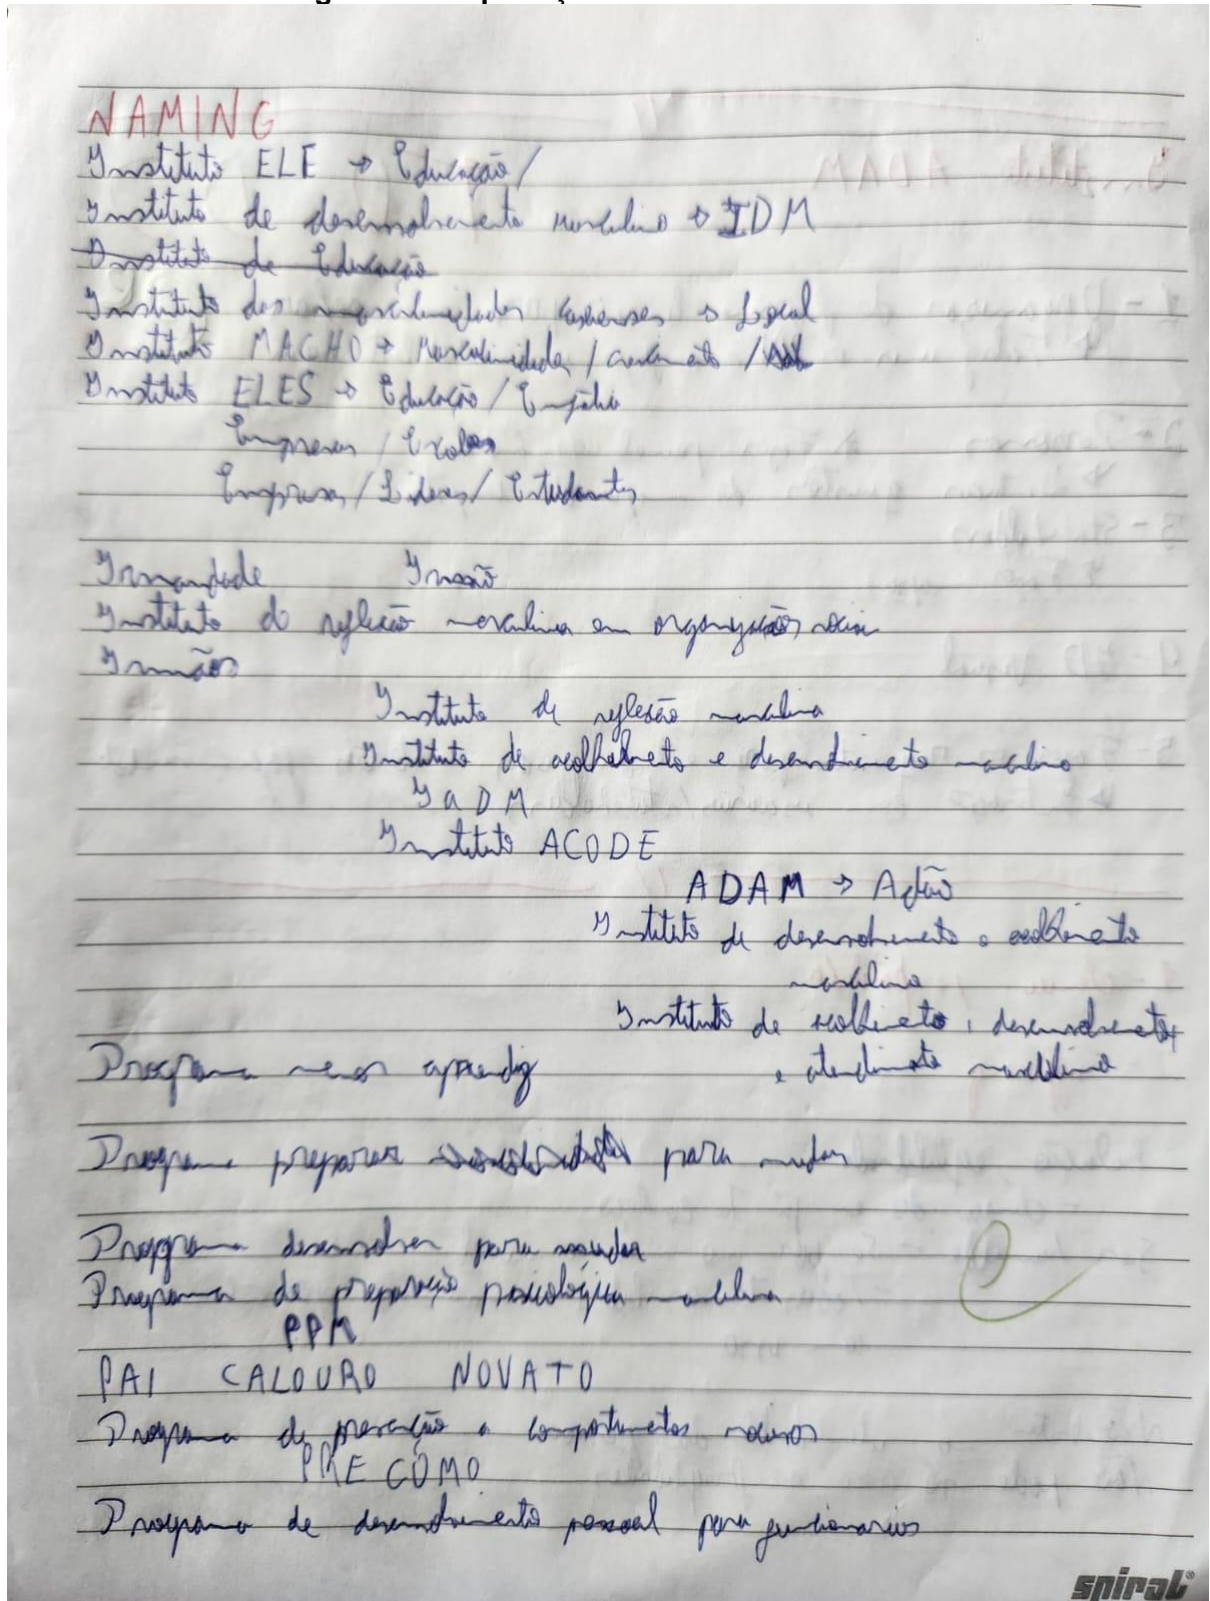 NAMING
Instituto ELE → Educação/
Instituto de desenvolvimento masculino → IDM
Instituto de Educação
Instituto das masculinidades → Local
Instituto MACHO → Masculinidades / crescimento /
Instituto ELES → Educação / Empatia
Empresas / Escolas
Empresas / Líderes / Estudantes
Irmandade
Instituto de reflexão masculina em organizações
Irmãos
Instituto de reflexão masculina
Instituto de acolhimento e desenvolvimento masculino
IaDM
Instituto ACODE
ADAM → Adão
Instituto de desenvolvimento e acolhimento
masculino
Instituto de acolhimento, desenvolvimento,
e atendimento masculino
Programa menor aprendiz
Programa preparar para mudar
Programa desenvolver para mudar
Programa de preparação psicológica masculina
PPM
PAI CALOURO NOVATO
Programa de prevenção a comportamentos nocivos
PRE COMO
Programa de desenvolvimento pessoal para funcionarios
spiral®